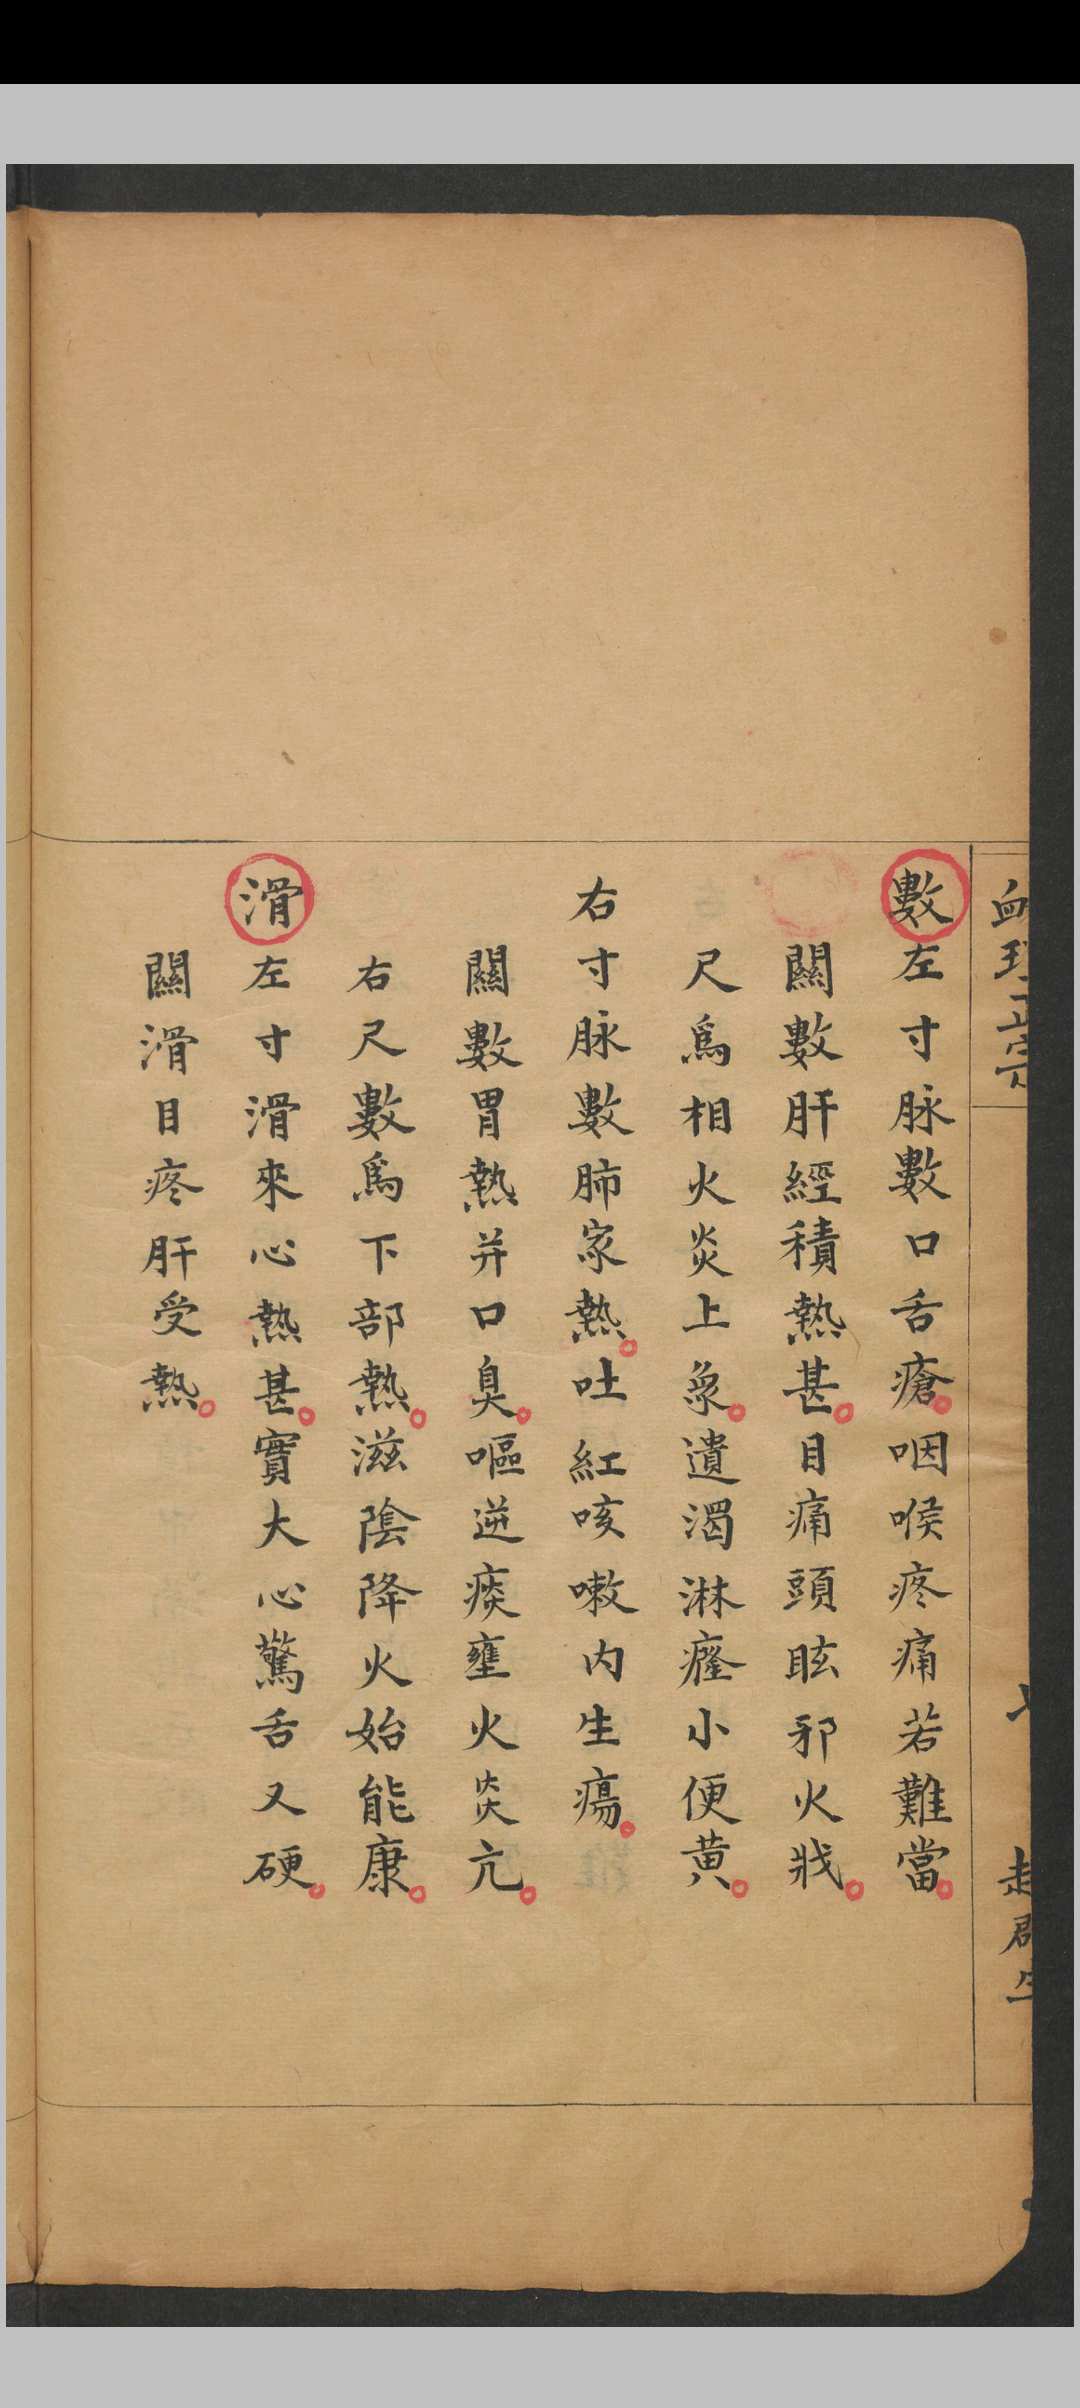 數左寸脉數口舌瘡咽喉疼痛若難當
關數肝經積熱甚目痛頭眩邪火戕
尺爲相火炎上象遺濁淋癃小便黄
右寸脉數肺家熱吐紅咳嗽内生瘍
關數胃熱并口臭嘔逆痰壅火炎亢
右尺數爲下部熱滋陰降火始能康
滑左寸滑來心熱甚實大心驚舌又硬
關滑目疼肝受熱